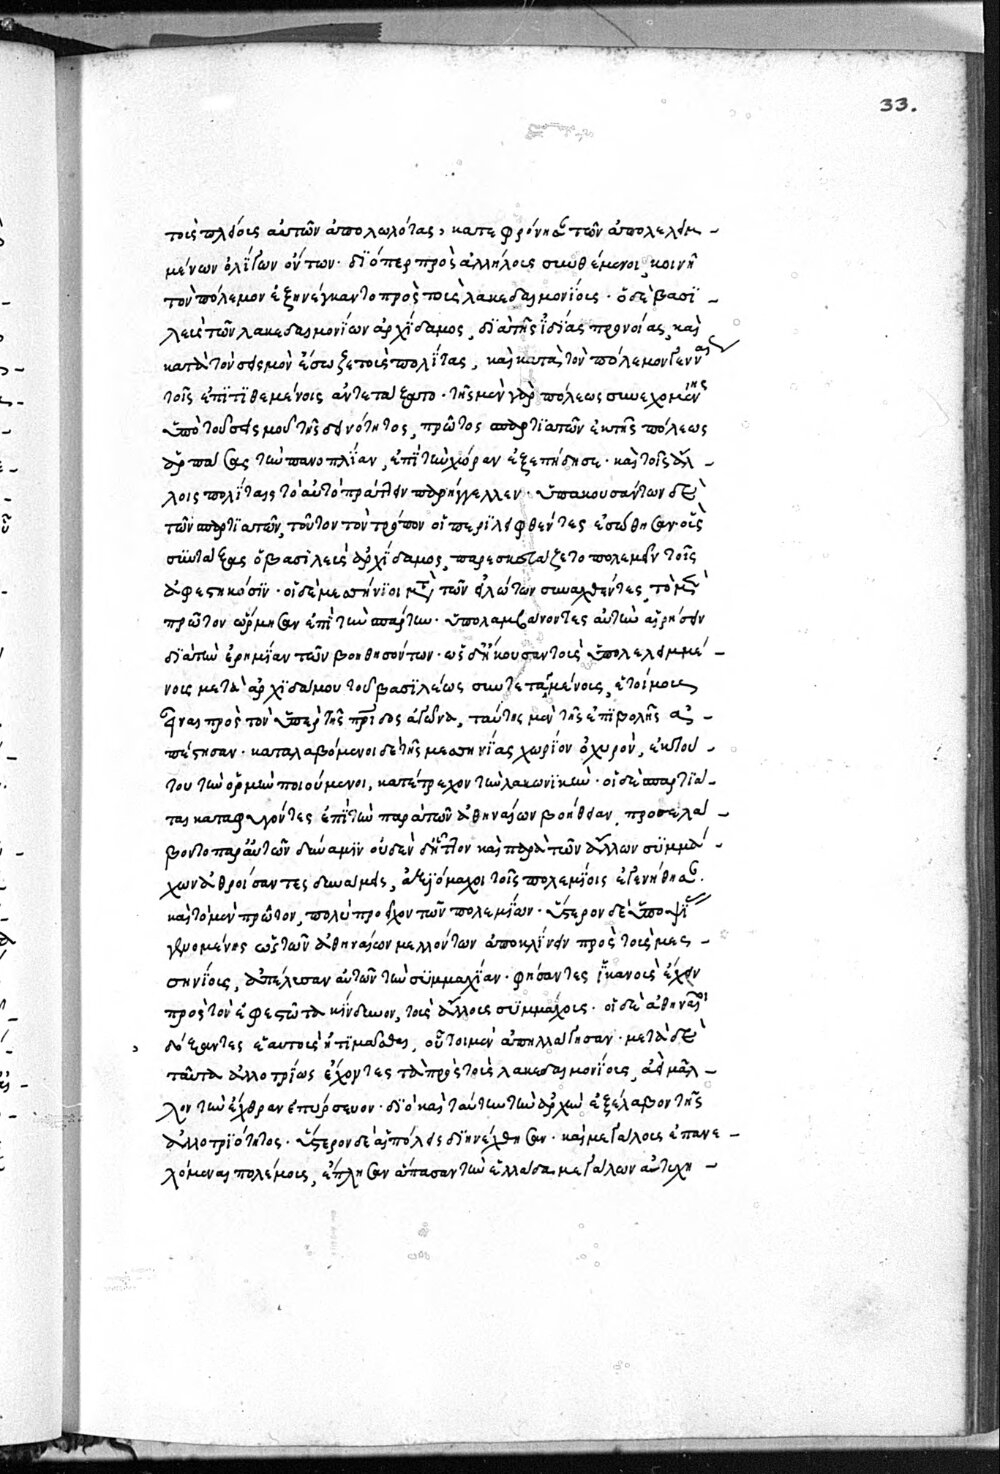 33.
τοὺς πλείους αὐτῶν ἀπολωλότας, κατεφρόνησαν τῶν ἀπολελειμ-
μένων ὀλίγων ὄντων· διόπερ πρὸς ἀλλήλους συνθέμενοι, κοινῇ
τὸν πόλεμον ἐξηνέγκαντο πρὸς τοὺς λακεδαιμονίους· ὁ δὲ βασι-
λεὺς τῶν λακεδαιμονίων ἀρχίδαμος, διὰ τῆς ἰδίας προνοίας, καὶ
κατὰ τὸν σεισμὸν ἔσωζε τοὺς πολίτας, καὶ κατὰ τὸν πόλεμον γενναίως
τοῖς ἐπιτιθεμένοις ἀντετάξατο· τῆς μὲν γὰρ πόλεως συνεχομένης
ὑπὸ τοῦ σεισμοῦ τῆς δεινότητος, πρῶτος σπαρτιατῶν ἐκ τῆς πόλεως
ἁρπάσας τὴν πανοπλίαν, ἐπὶ τὴν χώραν ἐξεπήδησε· καὶ τοῖς ἄλ-
λοις πολίταις τὸ αὐτὸ πράττειν παρήγγελλεν· ὑπακουσάντων δὲ
τῶν σπαρτιατῶν, τοῦτον τὸν τρόπον οἱ περιλειφθέντες ἐσώθησαν οὓς
συντάξας ὁ βασιλεὺς ἀρχίδαμος, παρεσκευάζετο πολεμεῖν τοῖς
ἀφεστηκόσιν· οἱ δὲ μεσσήνιοι μετὰ τῶν εἱλώτων συναχθέντες, τὸ μὲν
πρῶτον ὥρμησαν ἐπὶ τὴν σπάρτην· ὑπολαμβάνοντες αὐτὴν αἱρήσειν
διὰ τὴν ἐρημίαν τῶν βοηθησόντων· ὡς δ' ἤκουσαν τοὺς ὑπολελειμμέ-
νους μετὰ ἀρχιδάμου τοῦ βασιλέως συντεταγμένους, ἑτοίμους
εἶναι πρὸς τὸν ὑπὲρ τῆς πατρίδος ἀγῶνα, ταύτης μὲν τῆς ἐπιβολῆς ἀ-
πέστησαν· καταλαβόμενοι δὲ τῆς μεσσηνίας χωρίον ὀχυρόν, ἐκ τού-
του τὴν ὁρμὴν ποιούμενοι, κατέτρεχον τὴν λακωνικήν· οἱ δὲ σπαρτιᾶ-
ται καταφυγόντες ἐπὶ τὴν παρὰ τῶν ἀθηναίων βοήθειαν, προσελά-
βοντο παρ' αὐτῶν δύναμιν οὐδὲν δ' ἧττον καὶ παρὰ τῶν ἄλλων συμμά-
χων ἀθροίσαντες δυνάμεις, ἀξιόμαχοι τοῖς πολεμίοις ἐγενήθησαν.
καὶ τὸ μὲν πρῶτον, πολὺ προεῖχον τῶν πολεμίων· ὕστερον δὲ ὑποψίας
γενομένης ὡς τῶν ἀθηναίων μελλόντων ἀποκλίνειν πρὸς τοὺς μεσ-
σηνίους, ἀπέλυσαν αὐτῶν τὴν συμμαχίαν· φήσαντες ἱκανοὺς ἔχειν
πρὸς τὸν ἐφεστῶτα κίνδυνον, τοὺς ἄλλους συμμάχους· οἱ δὲ ἀθηναῖοι
δόξαντες ἑαυτοὺς ἠτιμάσθαι, οὗτοι μὲν ἀπηλλάγησαν· μετὰ δὲ
ταῦτα ἀλλοτρίως ἔχοντες τὰ πρὸς τοὺς λακεδαιμονίους, ἀεὶ μᾶλ-
λον τὴν ἔχθραν ἐπύρσευον· διὸ καὶ ταύτην τὴν ἀρχὴν ἐξέλαβον τῆς
ἀλλοτριότητος· ὕστερον δὲ αἱ πόλεις διηνέχθησαν· καὶ μεγάλους ἐπανε-
λόμεναι πολέμους, ἔπλησαν ἅπασαν τὴν ἑλλάδα μεγάλων ἀτυχη-